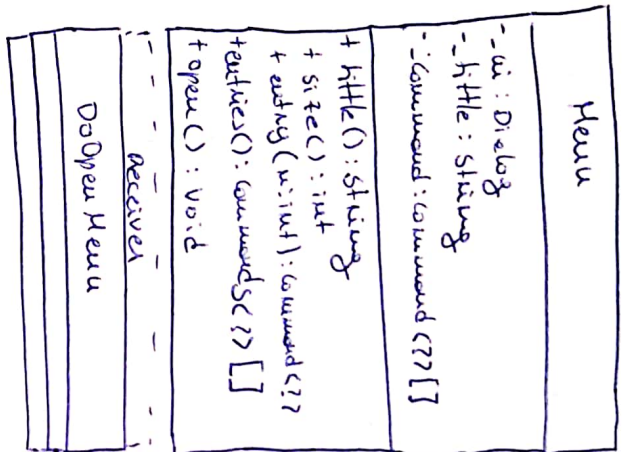 Menu
- _ui : Dialog
- _tittle : string
- _command : command <??> []
+ tittle() : string
+ size() : int
+ entry (n:int) : command <??
+ entries() : commands <??> []
+ open() : void
receiver
DoOpen Menu